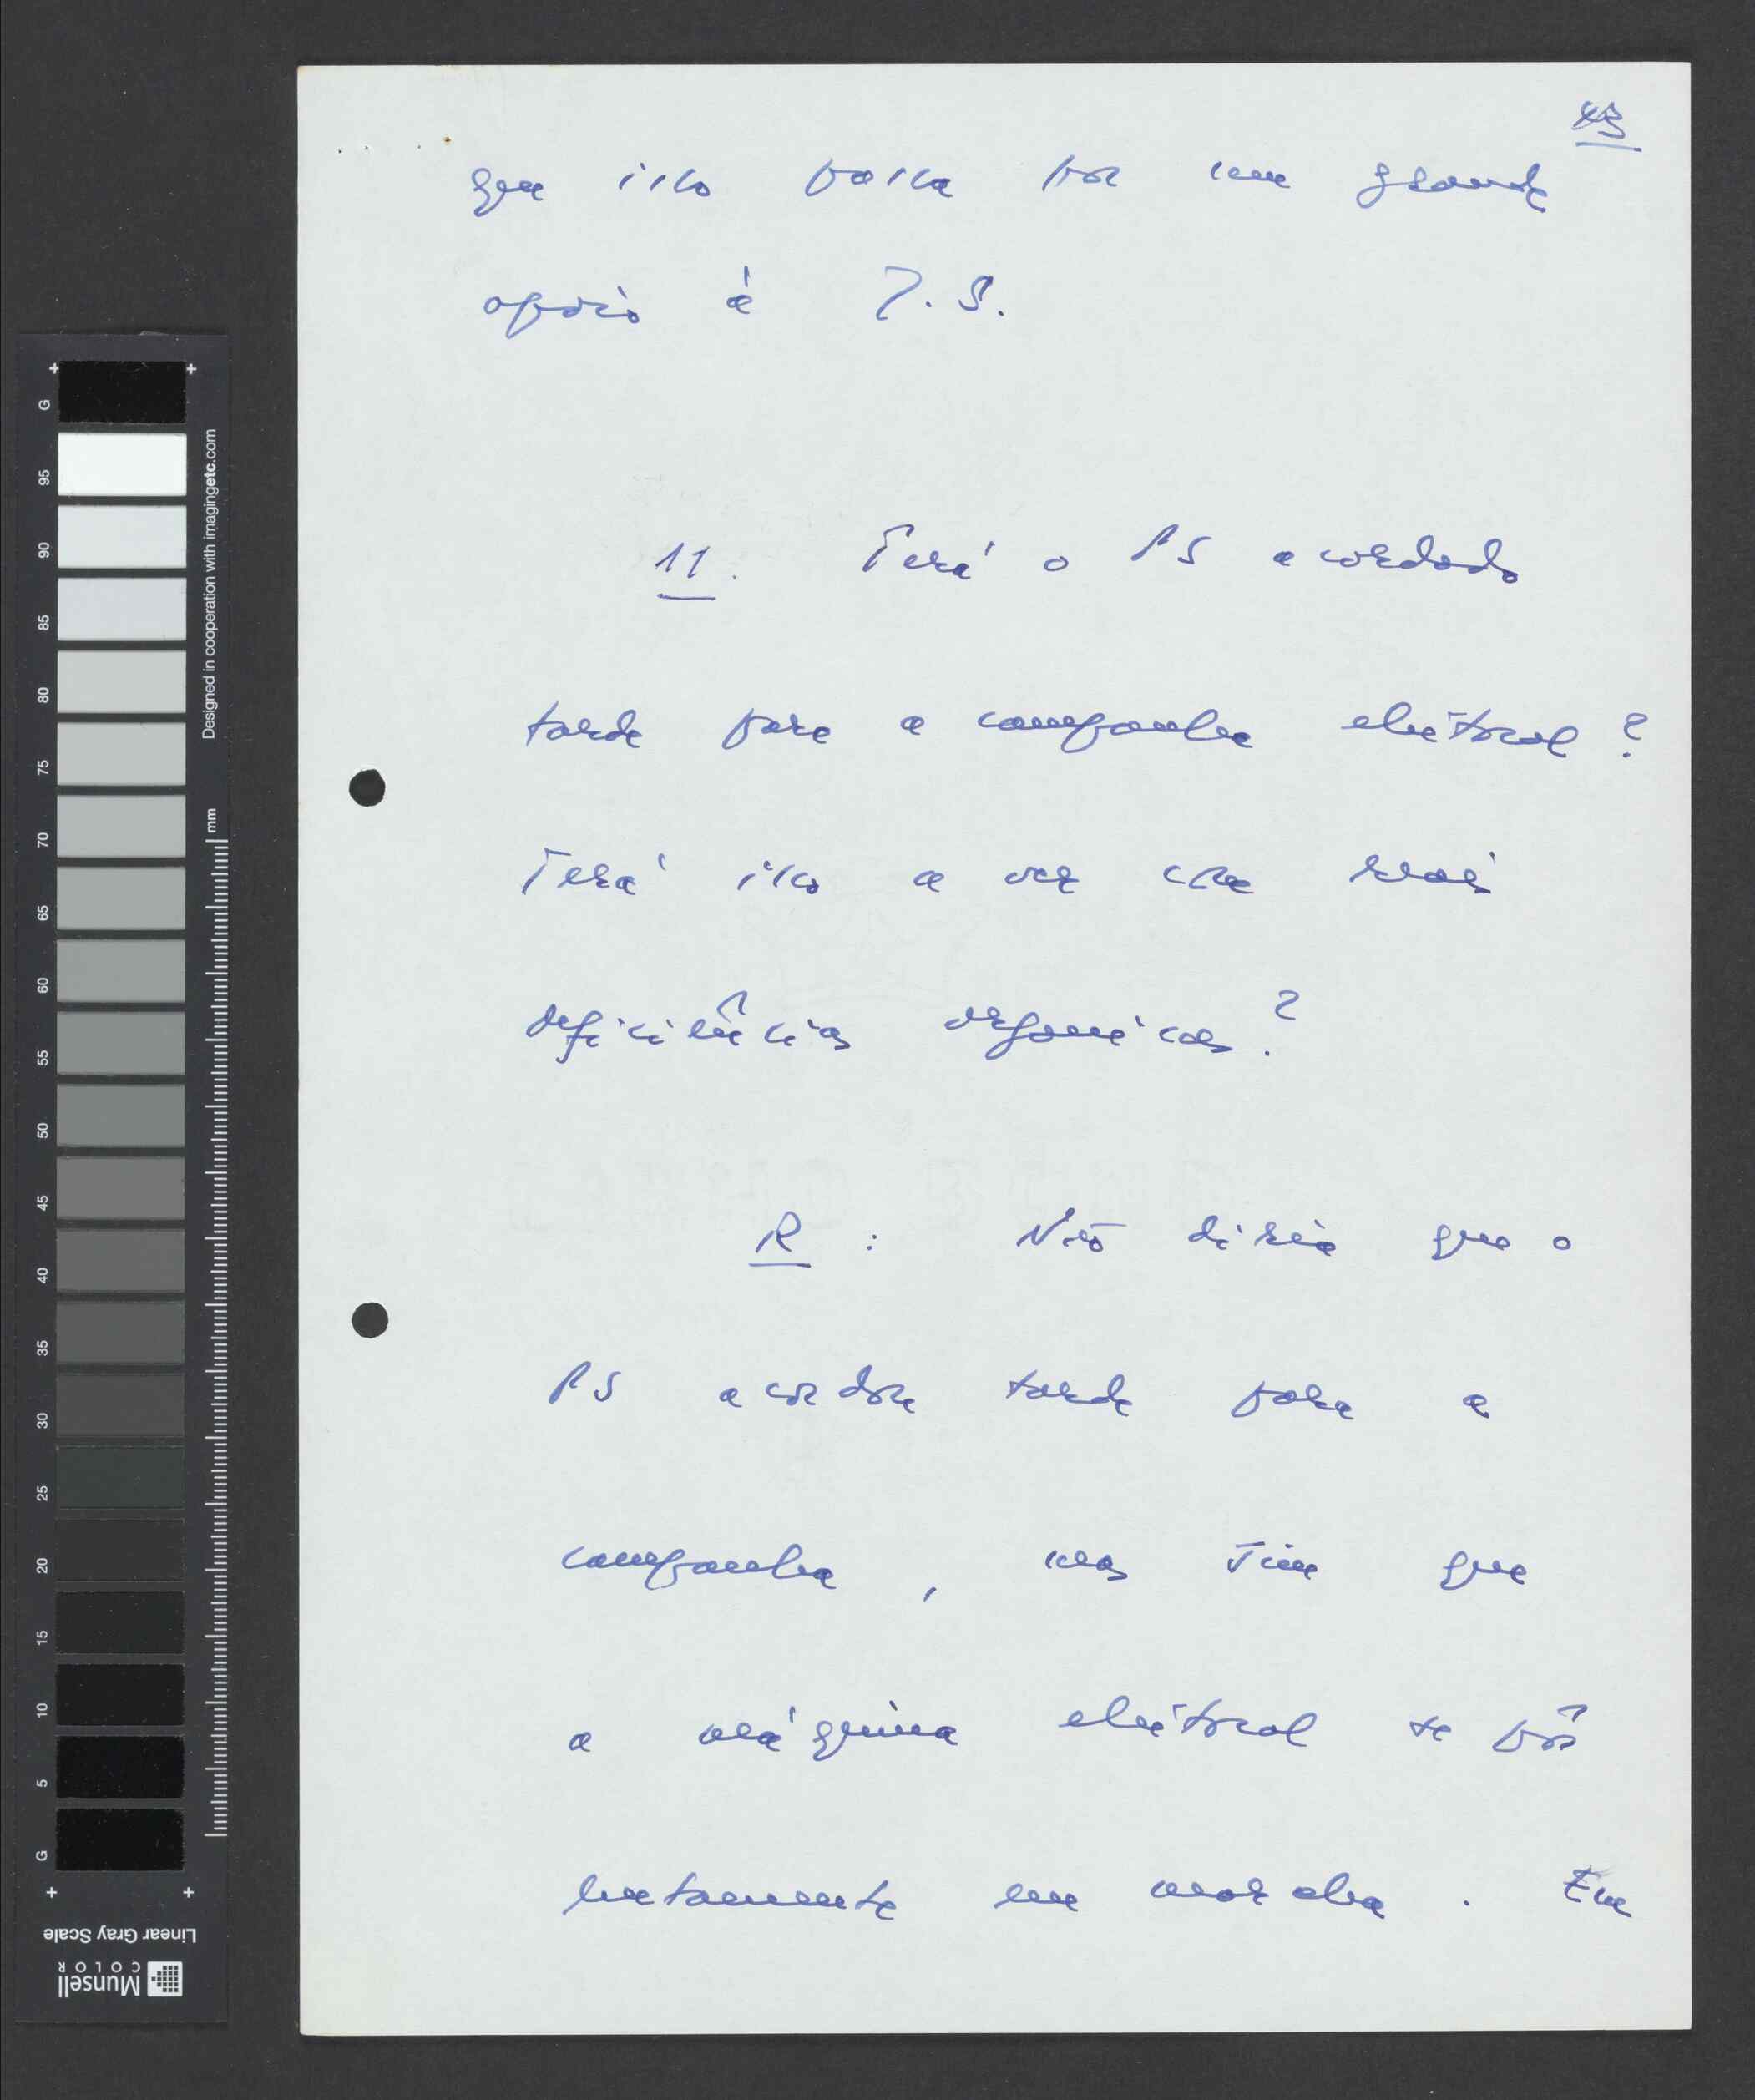 43
que isso passa por um grande
apoio à J.S.
11. Terá o PS acordado
tarde para a campanha eleitoral?
Terá isso a ver com
deficiências orgânicas?
R: Não diria que o
PS acordou tarde para a
campanha, mas sim que
a máquina eleitoral se pôs
lentamente em marcha. Em
G 95 90 85 80 75 70 65 60 55 50 45 40 35 30 25 20 15 10 5 G
Designed in cooperation with imagingetc.com
mm
Linear Gray Scale
Munsell
COLOR